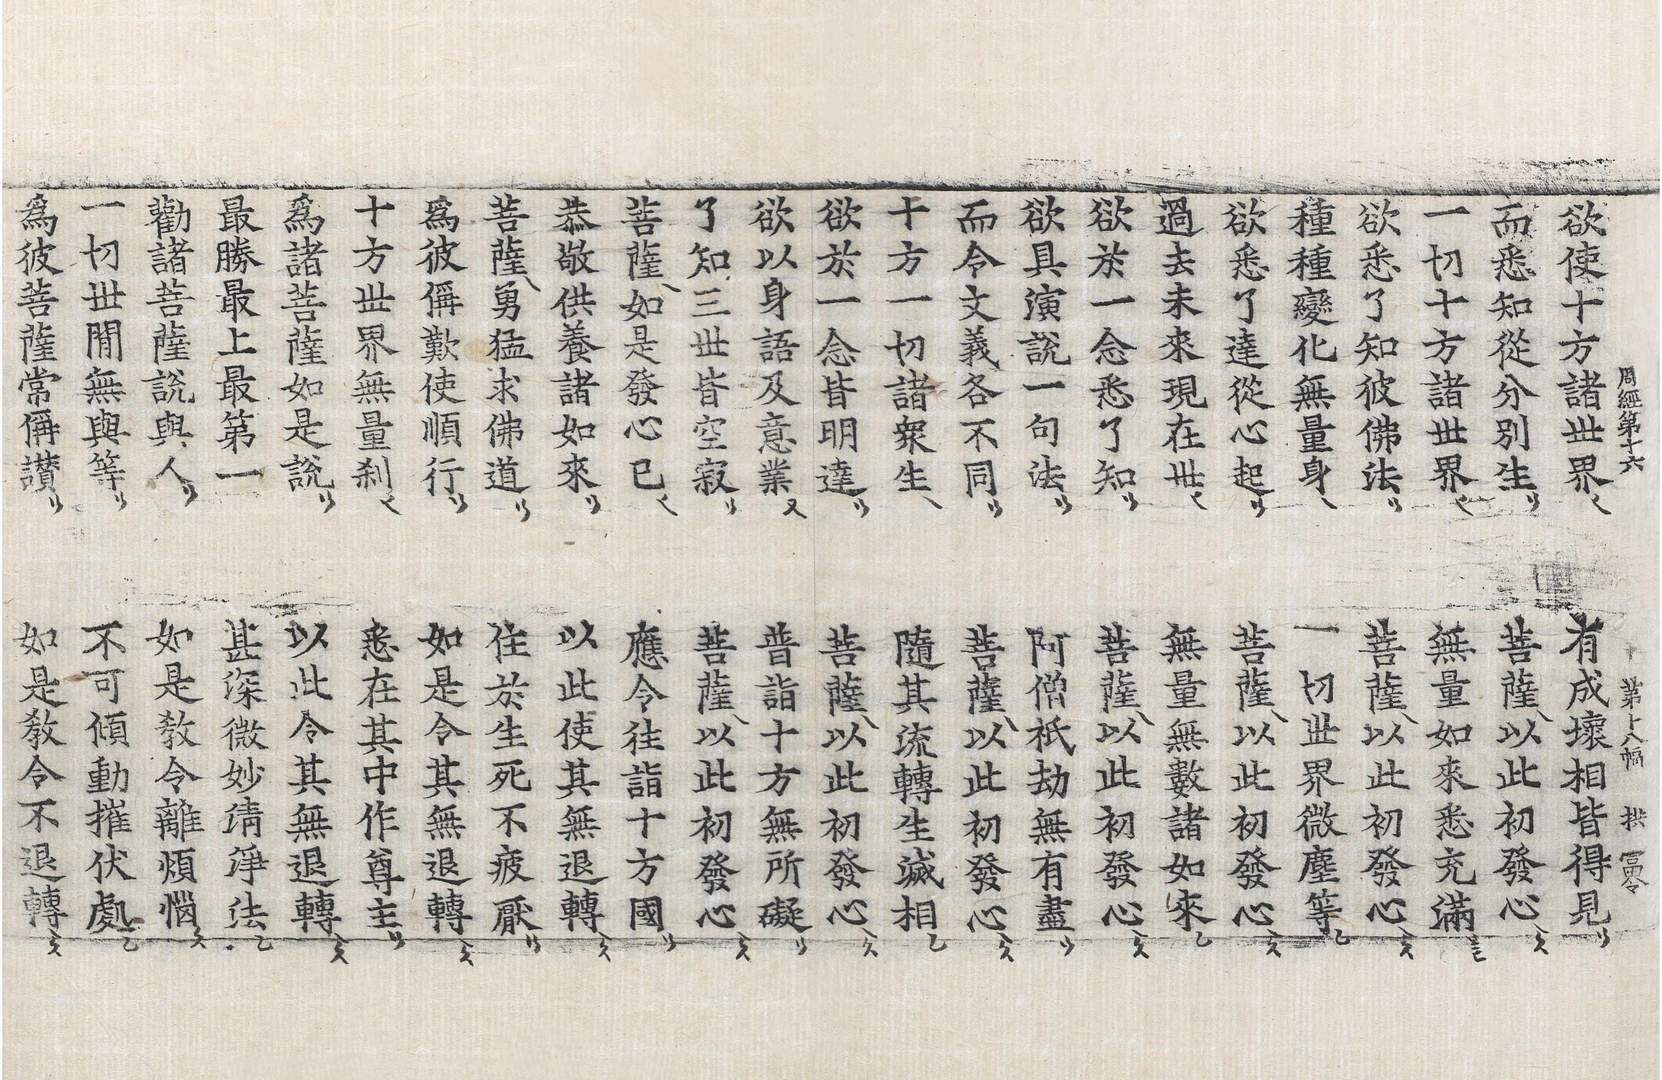 周經第十六
第十八幅
拱
欲使十方諸世界
有成壞相皆得見
而悉知從分別生
菩薩以此初發心
一切十方諸世界
無量如來悉充滿
欲悉了知彼佛法
菩薩以此初發心
種種變化無量身
一切世界微塵等
欲悉了達從心起
菩薩以此初發心
過去未來現在世
無量無數諸如來
欲於一念悉了知
菩薩以此初發心
欲具演說一句法
阿僧祇劫無有盡
而令文義各不同
菩薩以此初發心
十方一切諸衆生
隨其流轉生滅相
欲於一念皆明達
菩薩以此初發心
欲以身語及意業
普詣十方無所礙
了知三世皆空寂
菩薩以此初發心
菩薩如是發心已
應令往詣十方國
恭敬供養諸如來
以此使其無退轉
菩薩勇猛求佛道
住於生死不疲厭
爲彼偁歎使順行
如是令其無退轉
十方世界無量刹
悉在其中作尊主
爲諸菩薩如是說
以此令其無退轉
最勝最上最第一
甚深微妙淸淨法
勸諸菩薩說與人
如是敎令離煩惱
一切世閒無與等
不可傾動摧伏處
爲彼菩薩常偁讚
如是敎令不退轉